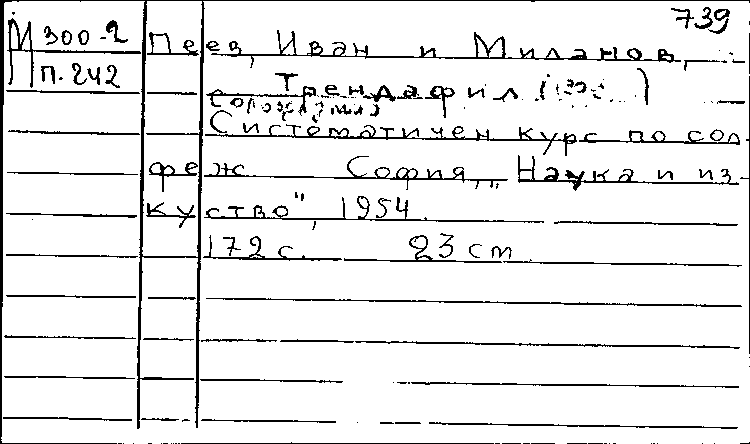 739
М 300-2 Пеев, Иван и Миланов,
П п.242 Трендафил ( )
Систематичен курс по сол-
феж София, „Наука и из-
куство", 1954
172 с. 23 cm